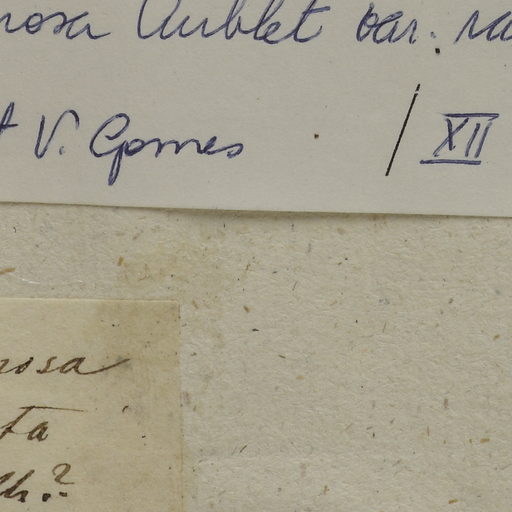 rosa Aublet var. ra
V. Gomes / XII
rosa
ta
lh.?